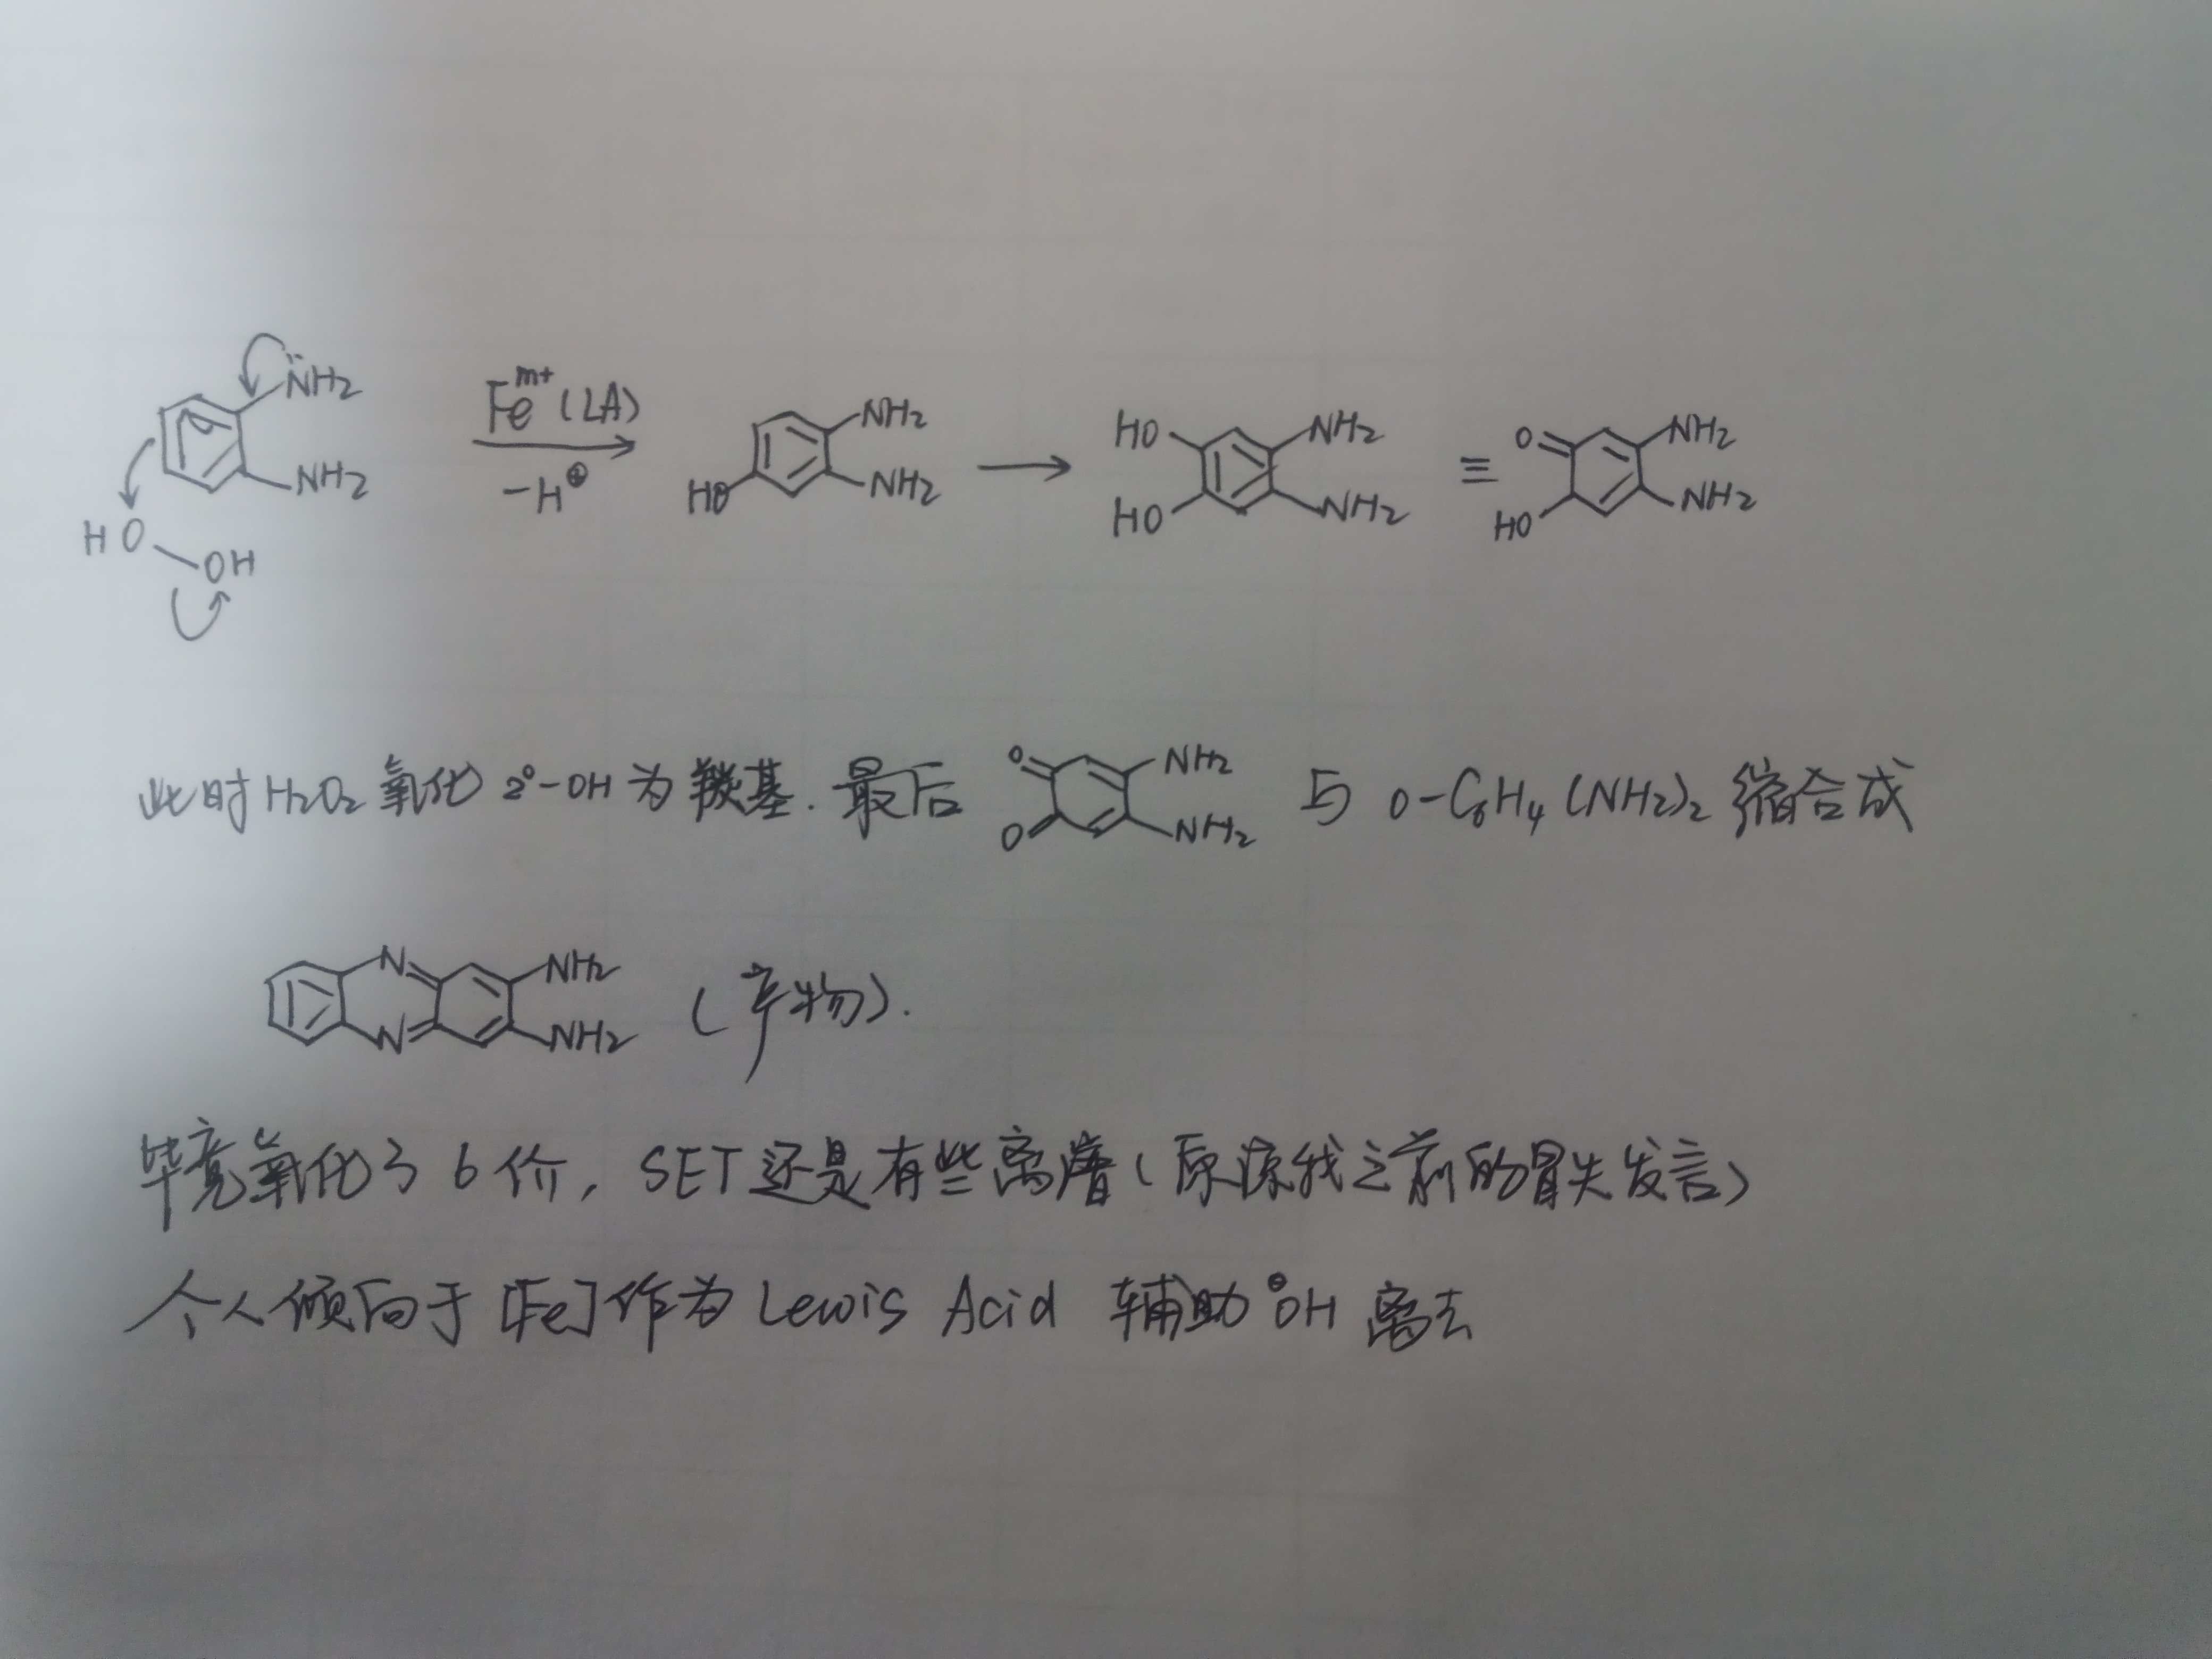 NH2 NH2 HO OH Fe^m+ (LA) -H⊕ HO NH2 NH2 → HO HO NH2 NH2 ≡ O HO NH2 NH2
此时 H2O2 氧化 2°-OH 为羰基. 最后 O O NH2 NH2 与 o-C6H4(NH2)2 缩合成
N N NH2 NH2 (产物).
毕竟氧化了 6 价, SET 还是有些离谱 (原谅我之前的冒失发言)
个人倾向于 [Fe] 作为 Lewis Acid 辅助 ⊖OH 离去